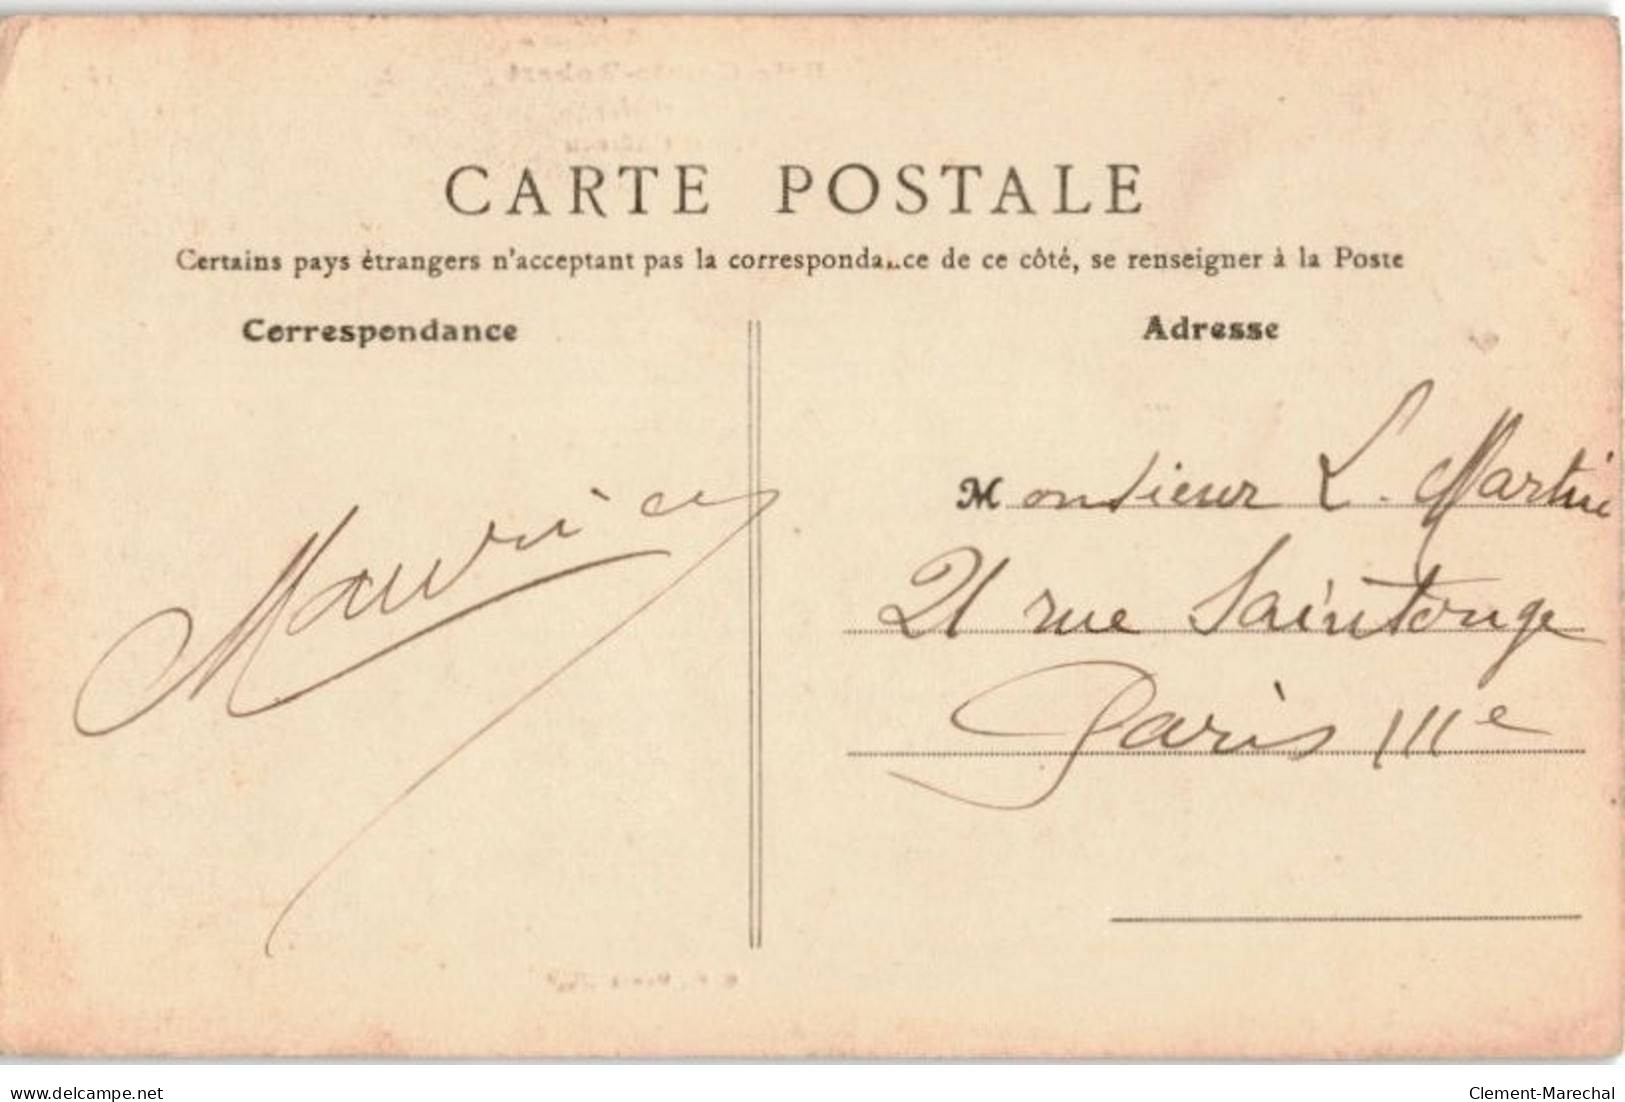 CARTE POSTALE
Certains pays étrangers n'acceptant pas la correspondance de ce côté, se renseigner à la Poste
Correspondance
Adresse
Maurice
Monsieur L. Martin
21 rue Saintonge
Paris IIIe
www.delcampe.net
Clement-Marechal